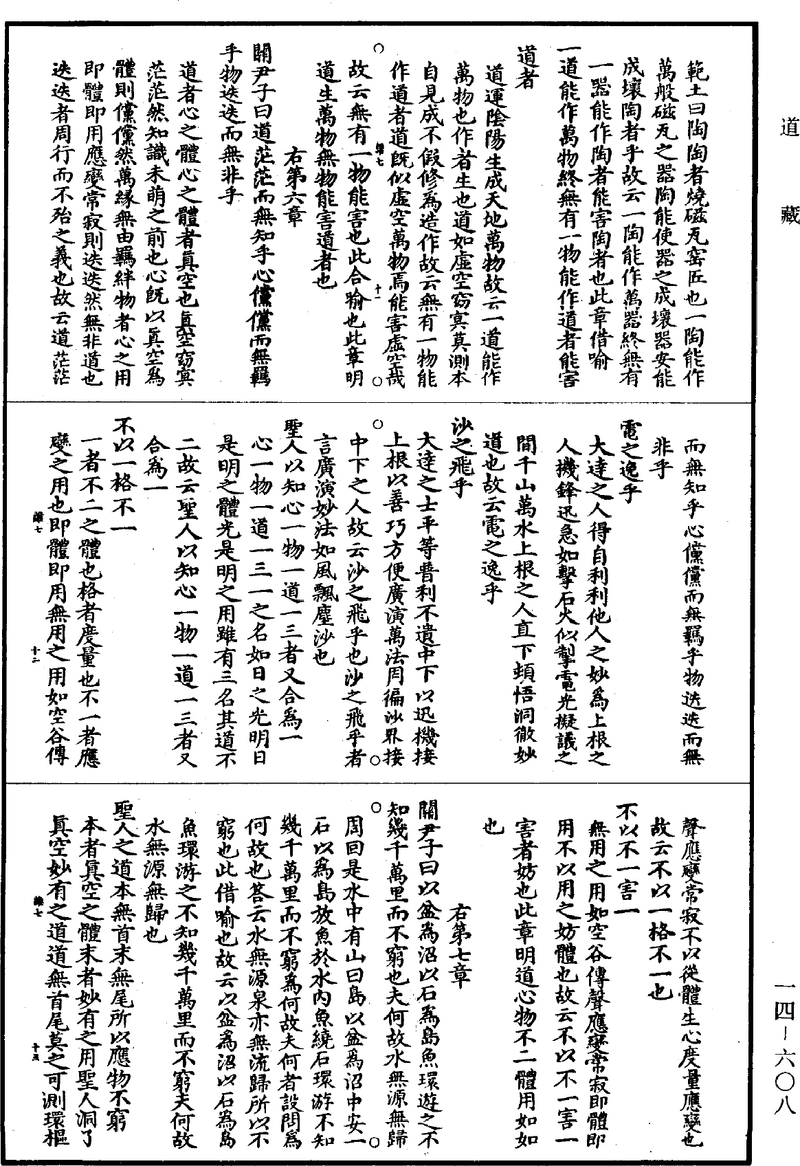 道藏
範土曰陶陶者燒磁瓦窑匠也一陶能作
萬般磁瓦之器陶能使器之成壞器安能
成壞陶者乎故云一陶能作萬器終無有
一器能作陶者能害陶者也此章借喻
一道能作萬物終無有一物能作道者能害
道者
道運陰陽生成天地萬物故云一道能作
萬物也作者生也道如虛空窈冥莫測本
自見成不假修爲造作故云無有一物能
作道者道既似虛空萬物焉能害虛空哉
故云無有一物能害道者也此合喻也此章明
道生萬物無物能害道者也
右第六章
關尹子曰道茫茫而無知乎心儻儻而無羈
乎物迭迭而無非乎
道者心之體心之體者真空也真空窈冥
茫茫然知識未萌之前也心既以真空爲
體則儻儻然萬緣無由羈絆物者心之用
即體即用應變常寂則迭迭然無非道也
迭迭者周行而不殆之義也故云道茫茫
而無知乎心儻儻而無羈乎物迭迭而無
非乎
電之逸乎
大達之人得自利利他人之妙爲上根之
人機鋒迅急如擊石火似掣電光擬議之
間千山萬水上根之人直下頓悟洞徹妙
道也故云電之逸乎
沙之飛乎
大達之士平等普利不遺中下以迅機接
上根以善巧方便廣演萬法周徧沙界接
中下之人故云沙之飛乎也沙之飛乎者
言廣演妙法如風飄塵沙也
聖人以知心一物一道一三者又合爲一
心一物一道一三一之名如日之光明日
是明之體光是明之用雖有三名其道不
二故云聖人以知心一物一道一三者又
合爲一
不以一格不一
一者不二之體也格者度量也不一者應
變之用也即體即用無用之用如空谷傳
聲應變常寂不以從體生心度量應變也
故云不以一格不一也
不以不一害一
無用之用如空谷傳聲應變常寂即體即
用不以用之妨體也故云不以不一害一
害者妨也此章明道心物不二體用如如
也
右第七章
關尹子曰以盆爲沼以石爲島魚環遊之不
知幾千萬里而不窮也夫何故水無源無歸
周回是水中有山曰島以盆爲沼中安一
石以爲島放魚於水内魚繞石環游不知
幾千萬里而不窮爲何故夫何者設問爲
何故也答云水無源泉亦無流歸所以不
窮也此借喻也故云以盆爲沼以石爲島
魚環游之不知幾千萬里而不窮夫何故
水無源無歸也
聖人之道本無首末無尾所以應物不窮
本者真空之體末者妙有之用聖人洞了
真空妙有之道道無首尾莫之可測環樞
一四-六〇八